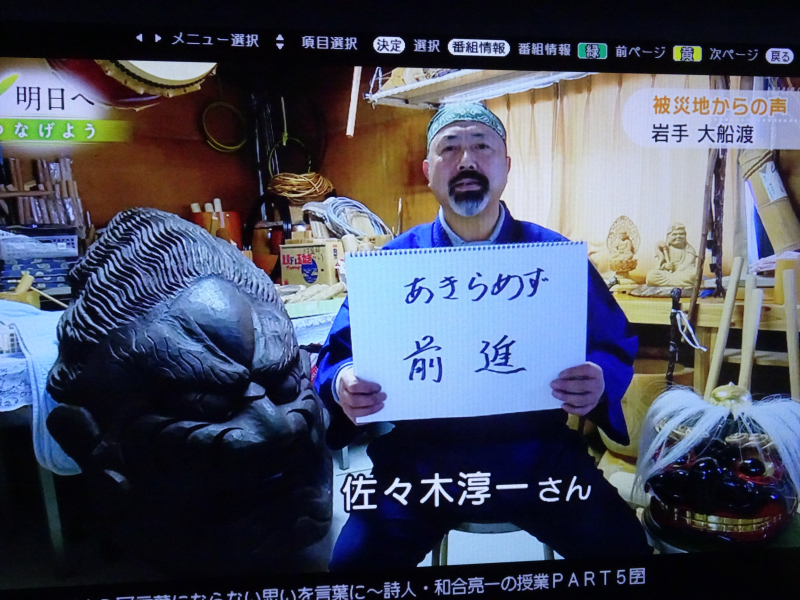 メニュー選択 項目選択 決定 選択 番組情報 番組情報 緑 前ページ 黄 次ページ 戻る
明日へ
つなげよう
被災地からの声
岩手 大船渡
あきらめず
前進
佐々木淳一さん
言葉にならない思いを言葉に～詩人・和合亮一の授業PART5字